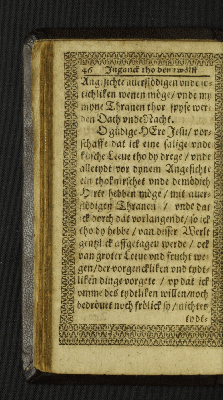 46 Inganck tho den twölff
Angesichte auerflödigen vnde ...
tichliken wenen möge / vnde my
myne Thranen thor spyse wer-
den Dach vnde Nacht.
O güdige HEre Jesu / vor-
schaffe dat ick eine salige vnde
küsche Leeue tho dy drege / vnde
alletydt vor dynem Angesichte
ein thoknirschet vnde demödich
Herte hebben möge / mit auer-
flödigen Thranen / vnde dat
ick dorch dat vorlangende / so ick
tho dy hebbe / van düsser Werlt
gentzlick affgetagen werde / ock
van groter Leeue vnd frucht we-
gen / der vorgencklicken vnd tydt-
liken dinge vorgete / vp dat ick
vmme des tydtliken willen / noch
bedröuet noch frölick sy / nichtes
tydt-